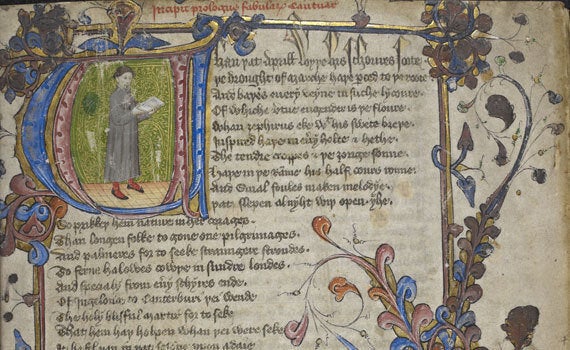 Incipit prologus fabularum Cantuar
Whan þat aprill wyþ his schoures soote
þe drought of marche haþe perced to þe roote
And baþed euery veyne in suche lycoure
Of whiche vertue engendred is þe floure
Whan zephirus eke wt his swete breþe
Inspired haþe in euy holte & hethe
The tendre croppes & þe ȝonge sonne
Haþe in þe Rame his half cours ronne
And smal foules maken melodye
þat slepen al nyht wiþ open yhe
So prikkeþ hem nature in her corages
Than longen folke to gone on pilgrimages
And palmeres for to seeke straungere strondes
To ferne halowes cowþe in sundre londes
And specialy from euy schyres ende
Of yngelond to Canterbury þei wende
The holy blisful martir for to seke
That hem haþ holpen whan þei were seke